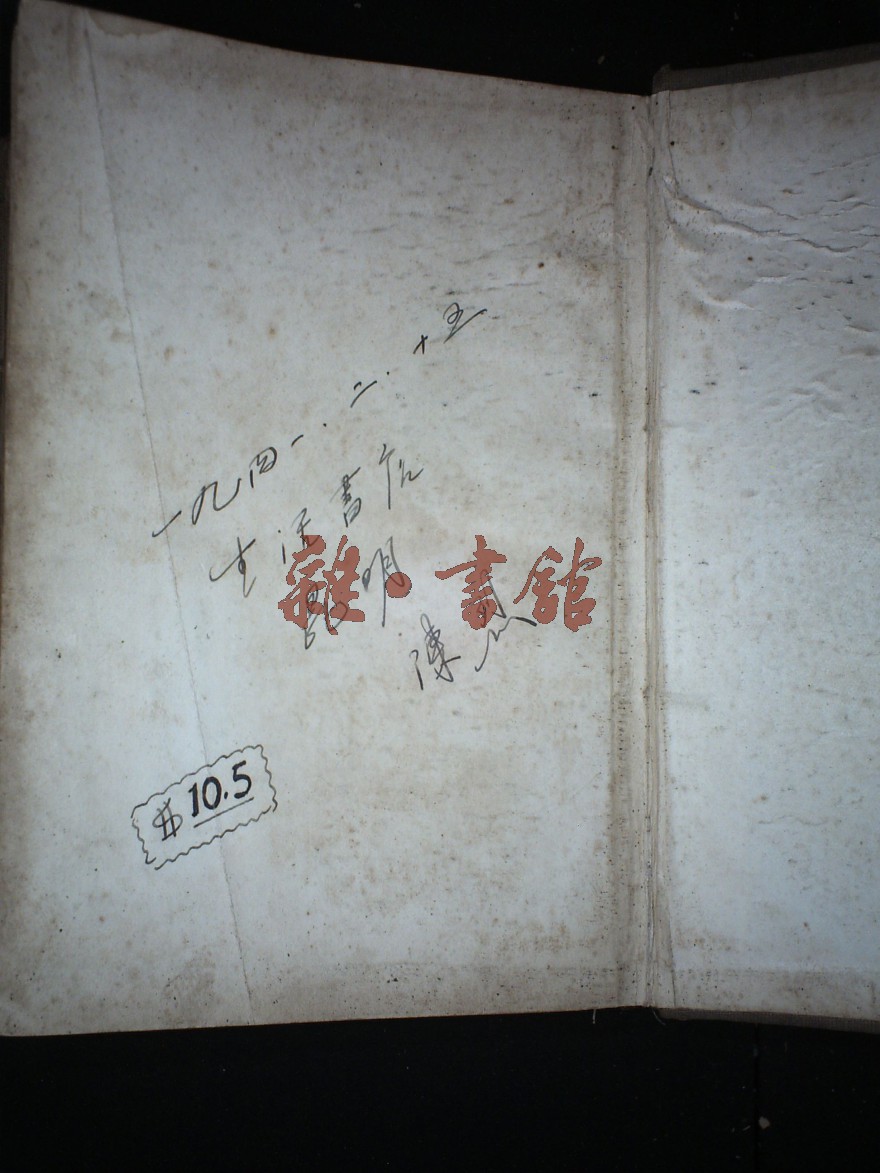 一九四一.二.十五
生活書店
昆明
陳
雜·書館
$10.5